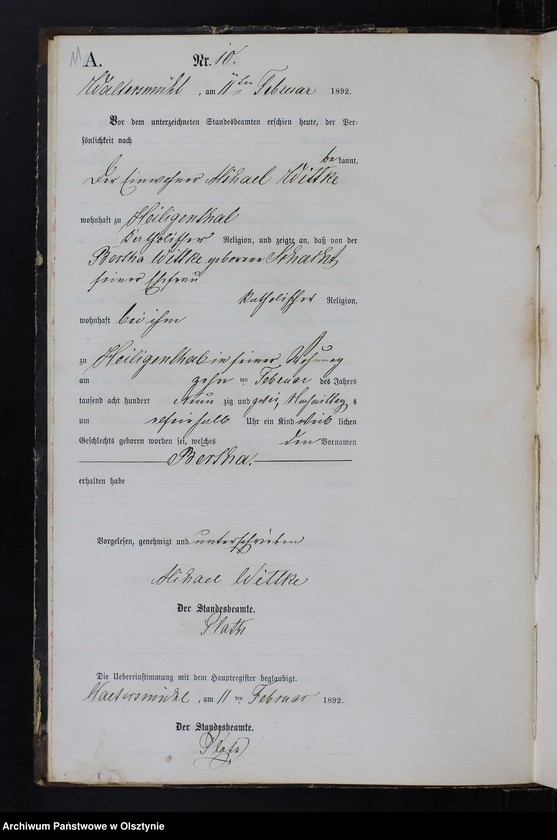 A. Nr. 10.
Waltersmühl, am 11ten Februar 1892.
Vor dem unterzeichneten Standesbeamten erschien heute, der Per-
sönlichkeit nach
be kannt,
Der Einwohner Mihael Wittke
wohnhaft zu Heiligenthal
katholischer Religion, und zeigte an, daß von der
Bertha Wittke geborene Schacht,
seiner Ehefrau
katholischer Religion,
wohnhaft bei ihm
zu Heiligenthal in seiner Wohnung
am zehn ten Februar des Jahres
tausend acht hundert neun zig und zwei, Nachmittag s
um Uhr ein Kind weib lichen
Geschlechts geboren worden sei, welches den Vornamen
Bertha
erhalten habe
Vorgelesen, genehmigt und unterschrieben
Mihael Wittke
Der Standesbeamte.
Die Uebereinstimmung mit dem Hauptregister beglaubigt.
Waltersmühl, am 11 ten Februar 1892.
Der Standesbeamte.
Archiwum Państwowe w Olsztynie